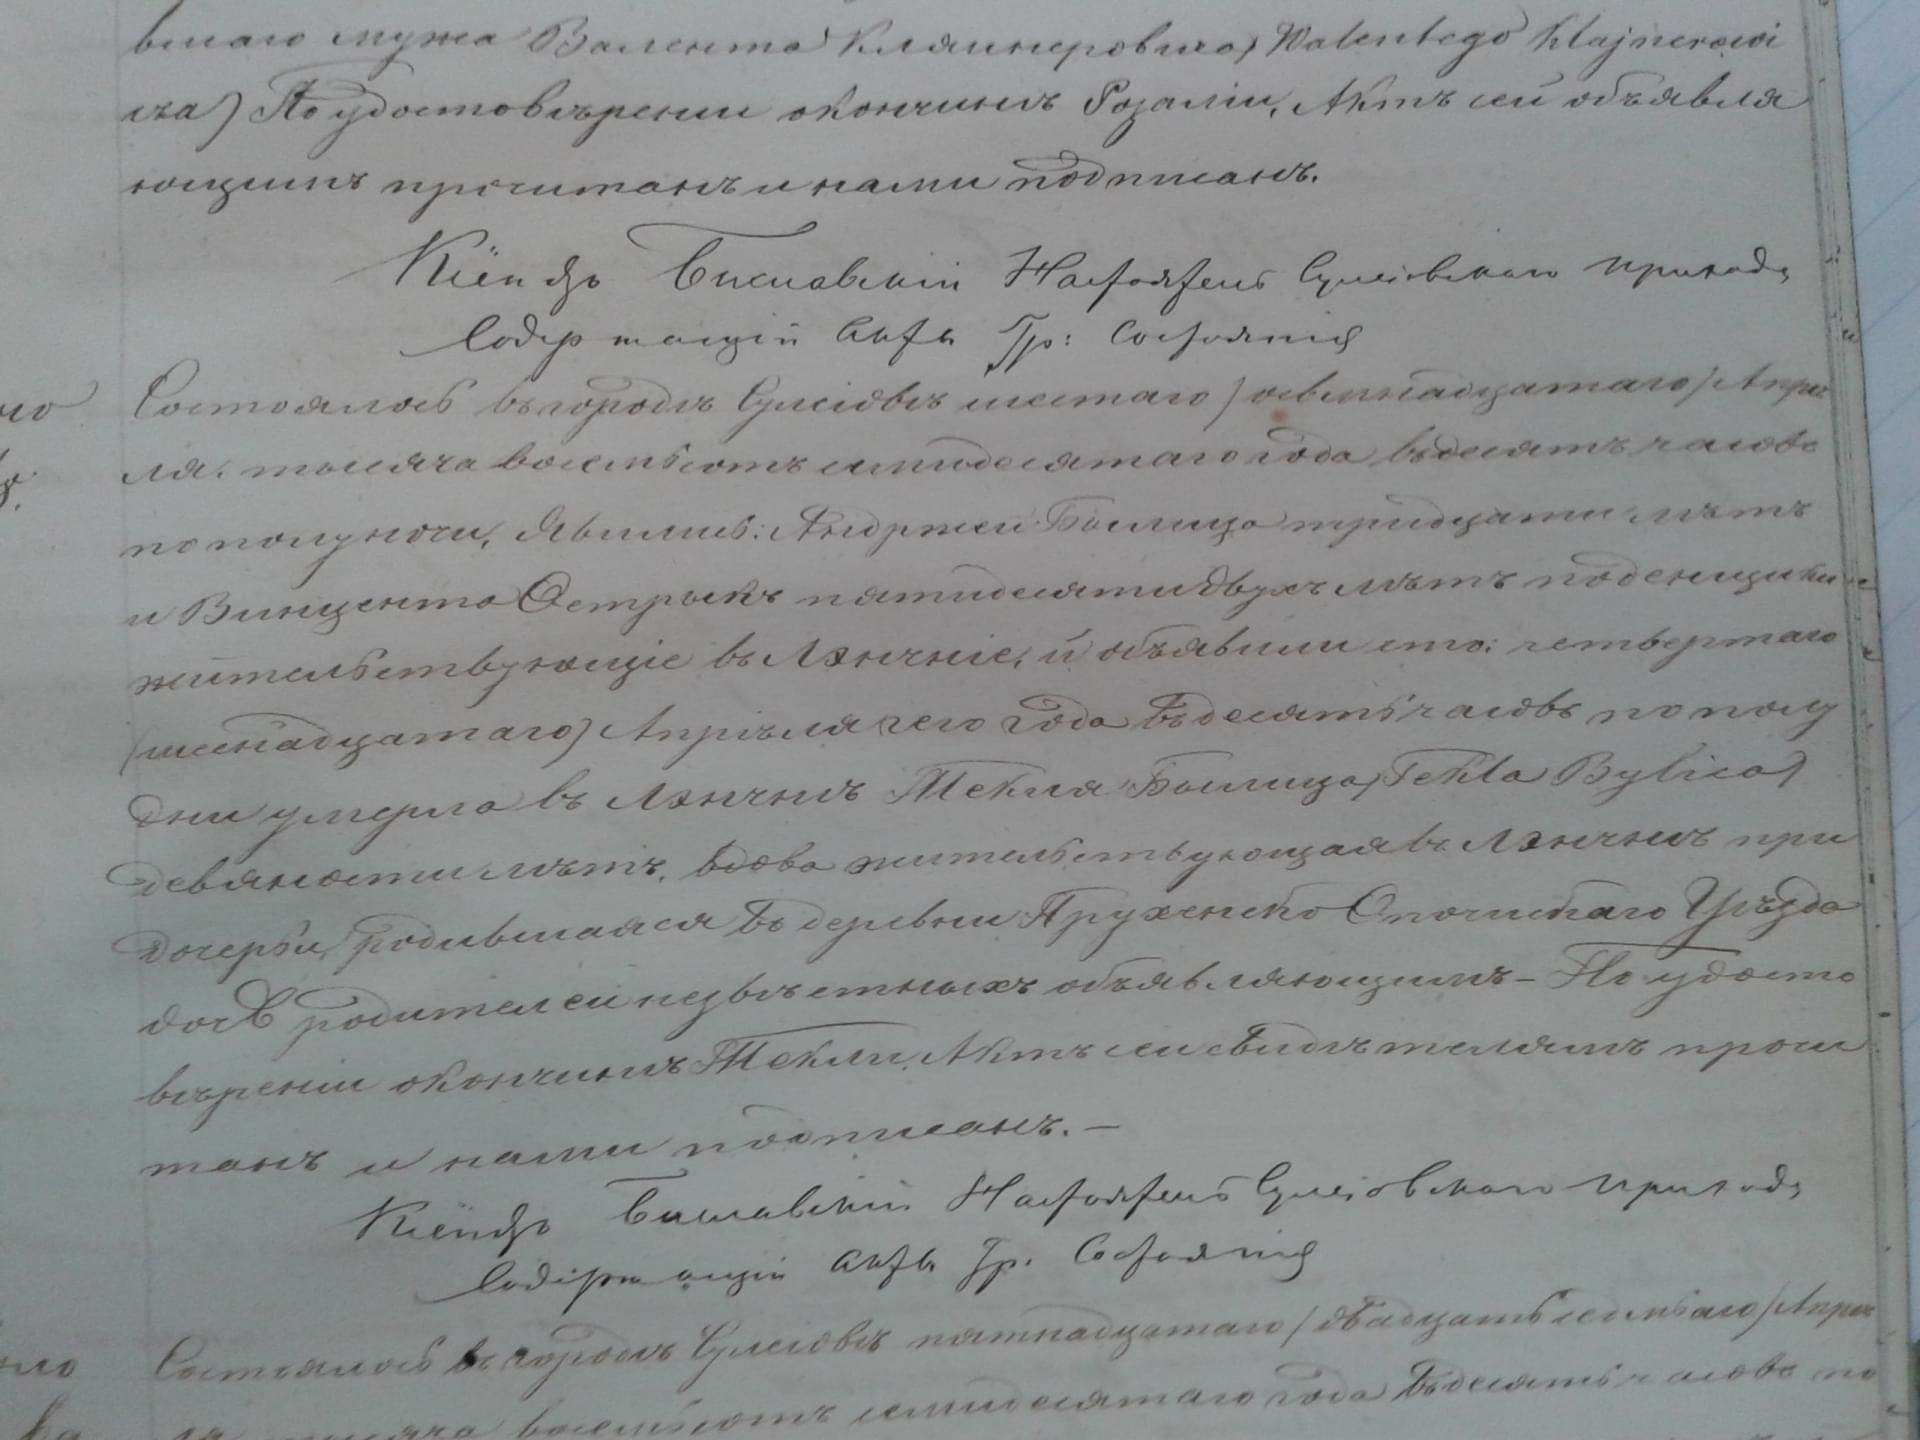 вшаго мужа Валента Кляйнеровича, Walentego Klajnerowi
cza) По удостовѣреніи окончинѣ Розаліи, Актъ сей объявля
ющимъ прочитанъ и нами подписанъ.
Ксёндзъ Настоятель Сулеіовскаго прихода
Содержащій Акты Гр: Состоянія
Состоялось въ городѣ Сулеіовѣ шестаго / осьмнадцатаго / Апрѣ
ля, тысяча восемьсотъ семидесятаго года въ десять часовъ
по полуночи, Явились: Андржей Былица тридцати лѣтъ
и Винцента пятидесяти двухъ лѣтъ поденщики
жительствующіе въ Лэнчніе, и объявили что: четвертаго
(шеснадцатаго) Апрѣля сего года въ десять часовъ по полу
дни умерла въ Лэнчнѣ Текля Былица, Tekla Bylica)
девяности лѣтъ, вдова жительствующая въ Лэнчнѣ при
дочерьи, родившаяся въ деревни Опочискаго Уѣзда
дочь родителей неизвѣстныхъ объявляющимъ – По удосто
вѣреніи окончинѣ Текли, Актъ сей свидѣтелямъ прочи
танъ и нами подписанъ. –
Ксёндзъ Настоятель Сулеіовскаго прихода
Содержащій Акты Гр. Состоянія
Состоялось въ городѣ Сулеіовѣ пятнадцатаго / двадцать седмьаго / Апрѣ
ля тысяча восемьсотъ семидесятаго года въ десять часовъ по